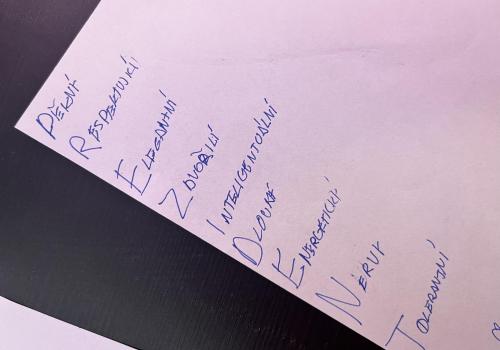 PĚKNÝ
RESPEKTUJÍCÍ
ELEGANTNÍ
ZDVOŘILÍ
INTELIGENTUÁLNÍ
DLOUHÉ
ENERGETICKÝ
TOLERANTNÍ